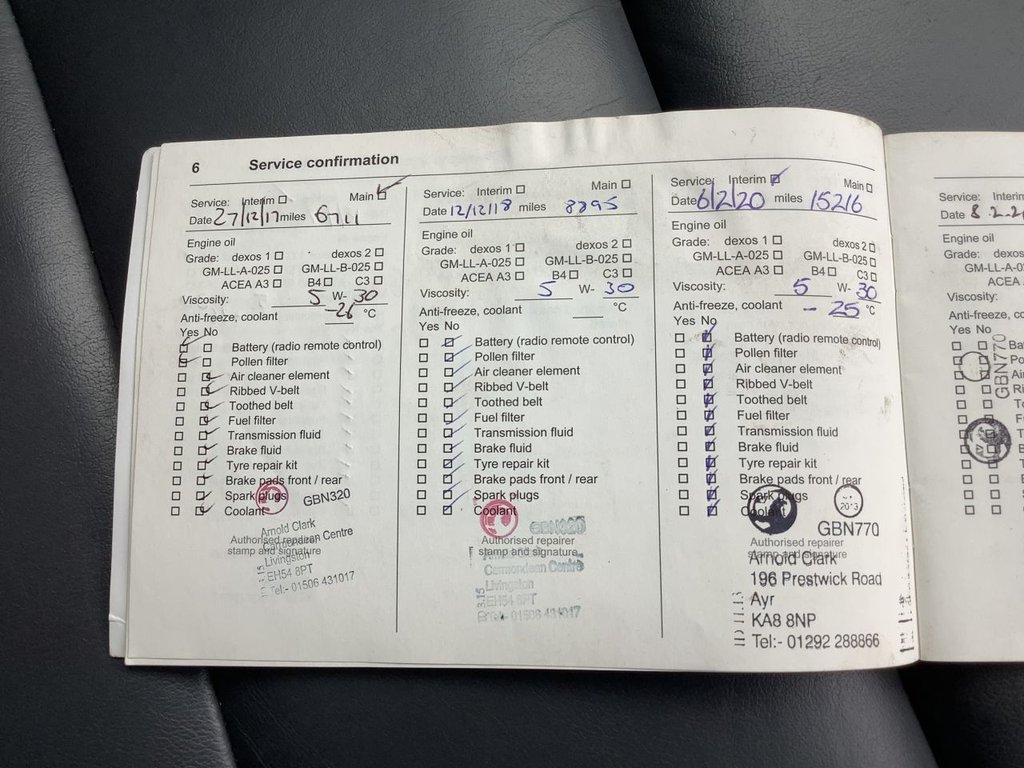 6 Service confirmation
Service: Interim Main
Date 27/12/17 miles 6711
Engine oil
Grade: dexos 1 dexos 2
GM-LL-A-025 GM-LL-B-025
ACEA A3 B4 C3
Viscosity: 5 W- 30
Anti-freeze, coolant -26 °C
Yes No
Battery (radio remote control)
Pollen filter
Air cleaner element
Ribbed V-belt
Toothed belt
Fuel filter
Transmission fluid
Brake fluid
Tyre repair kit
Brake pads front / rear
Spark plugs
Coolant
GBN320
Authorised repairer
stamp and signature
Arnold Clark
Centre
Livingston
EH54 8PT
Tel:- 01506 431017
Service: Interim Main
Date 12/12/18 miles 8895
Engine oil
Grade: dexos 1 dexos 2
GM-LL-A-025 GM-LL-B-025
ACEA A3 B4 C3
Viscosity: 5 W- 30
Anti-freeze, coolant °C
Yes No
Battery (radio remote control)
Pollen filter
Air cleaner element
Ribbed V-belt
Toothed belt
Fuel filter
Transmission fluid
Brake fluid
Tyre repair kit
Brake pads front / rear
Spark plugs
Coolant
Authorised repairer
stamp and signature
Carmondean Centre
Livingston
EH54 8PT
01506 431017
Service: Interim Main
Date 6/2/20 miles 15216
Engine oil
Grade: dexos 1 dexos 2
GM-LL-A-025 GM-LL-B-025
ACEA A3 B4 C3
Viscosity: 5 W- 30
Anti-freeze, coolant - 25 °C
Yes No
Battery (radio remote control)
Pollen filter
Air cleaner element
Ribbed V-belt
Toothed belt
Fuel filter
Transmission fluid
Brake fluid
Tyre repair kit
Brake pads front / rear
Spark plugs
Coolant
GBN770
Authorised repairer
stamp and signature
Arnold Clark
196 Prestwick Road
Ayr
KA8 8NP
Tel:- 01292 288866
Service: Interim
Date 8.2.2
Engine oil
Grade: dexos
GM-LL-A
ACEA
Viscosity:
Anti-freeze, co
Yes No
GBN770